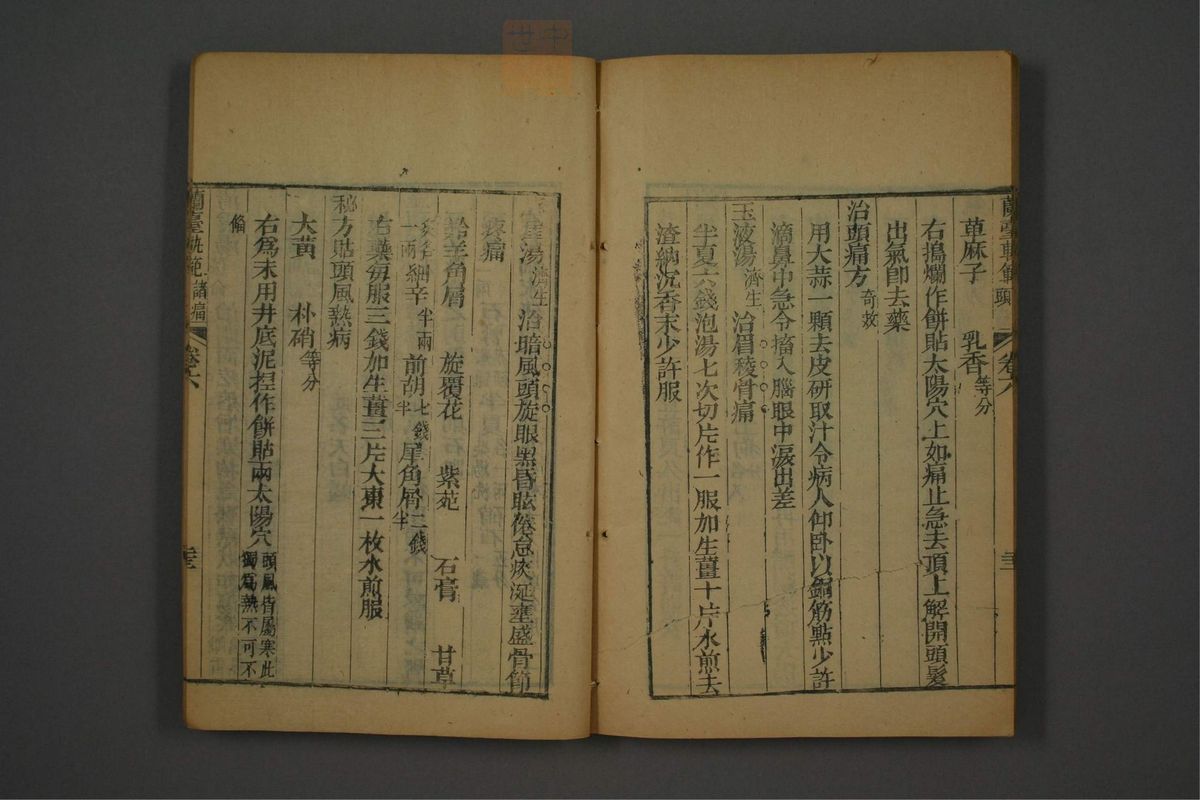 蘭臺軌範 頭 卷六
萆麻子 乳香等分
右搗爛作餅貼太陽穴上如痛止急去頂上解開頭髮
出氣卽去藥
治頭痛方奇效
用大蒜一顆去皮研取汁令病人仰卧以銅筋點少許
滴鼻中急令搐入腦眼中淚出差
玉液湯濟生 治眉稜骨痛
半夏六錢泡湯七次切片作一服加生薑十片水煎去
渣納沉香末少許服
湯濟生 治暗風頭旋眼黑昏眩倦怠痰涎壅盛骨節
疼痛
羚羊角屑 旋覆花 紫苑 石膏 甘草
炙各一兩 細辛半兩 前胡七錢半 犀角屑二錢半
右藥每服三錢加生薑三片大棗一枚水煎服
秘方貼頭風熱病
大黃 朴硝等分
右爲末用井底泥揑作餅貼兩太陽穴頭風皆屬寒此獨爲熱不可不
備
蘭臺軌範 諸痛 卷六